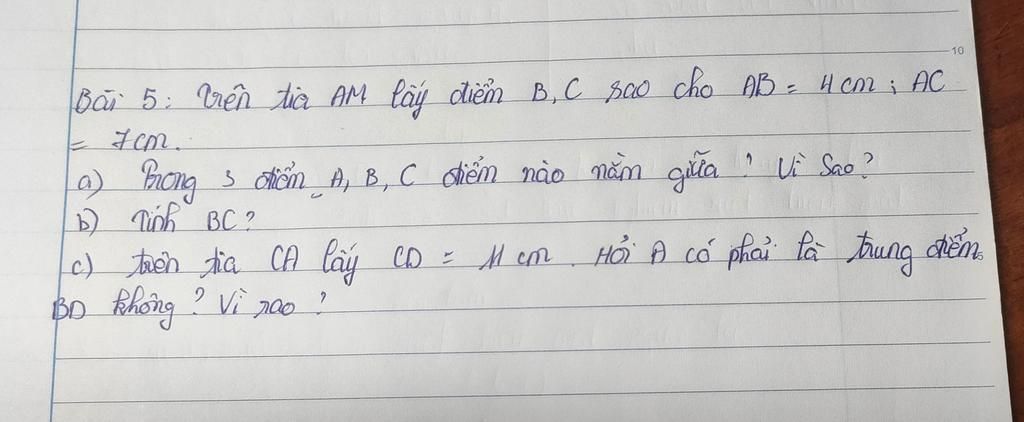 10
Bài 5: Trên tia AM lấy điểm B, C sao cho AB = 4 cm; AC
= 7cm.
a) Trong 3 điểm A, B, C điểm nào nằm giữa? Vì Sao?
b) Tính BC?
c) trên tia CA lấy CD = 11 cm. Hỏi A có phải là trung điểm
BD không? Vì sao?